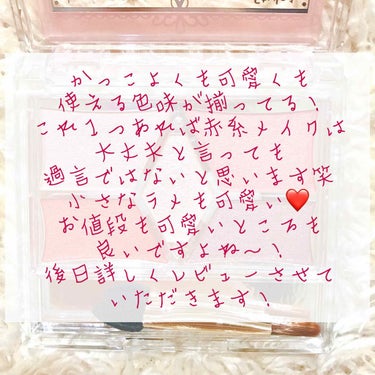 かっこよくも可愛くも
使える色味が揃ってる！
これ１つあれば赤系メイクは
大丈夫と言っても
過言ではないと思います笑
小さなラメも可愛い❤️
お値段も可愛いところも
良いですよね〜！
後日詳しくレビューさせて
いただきます！